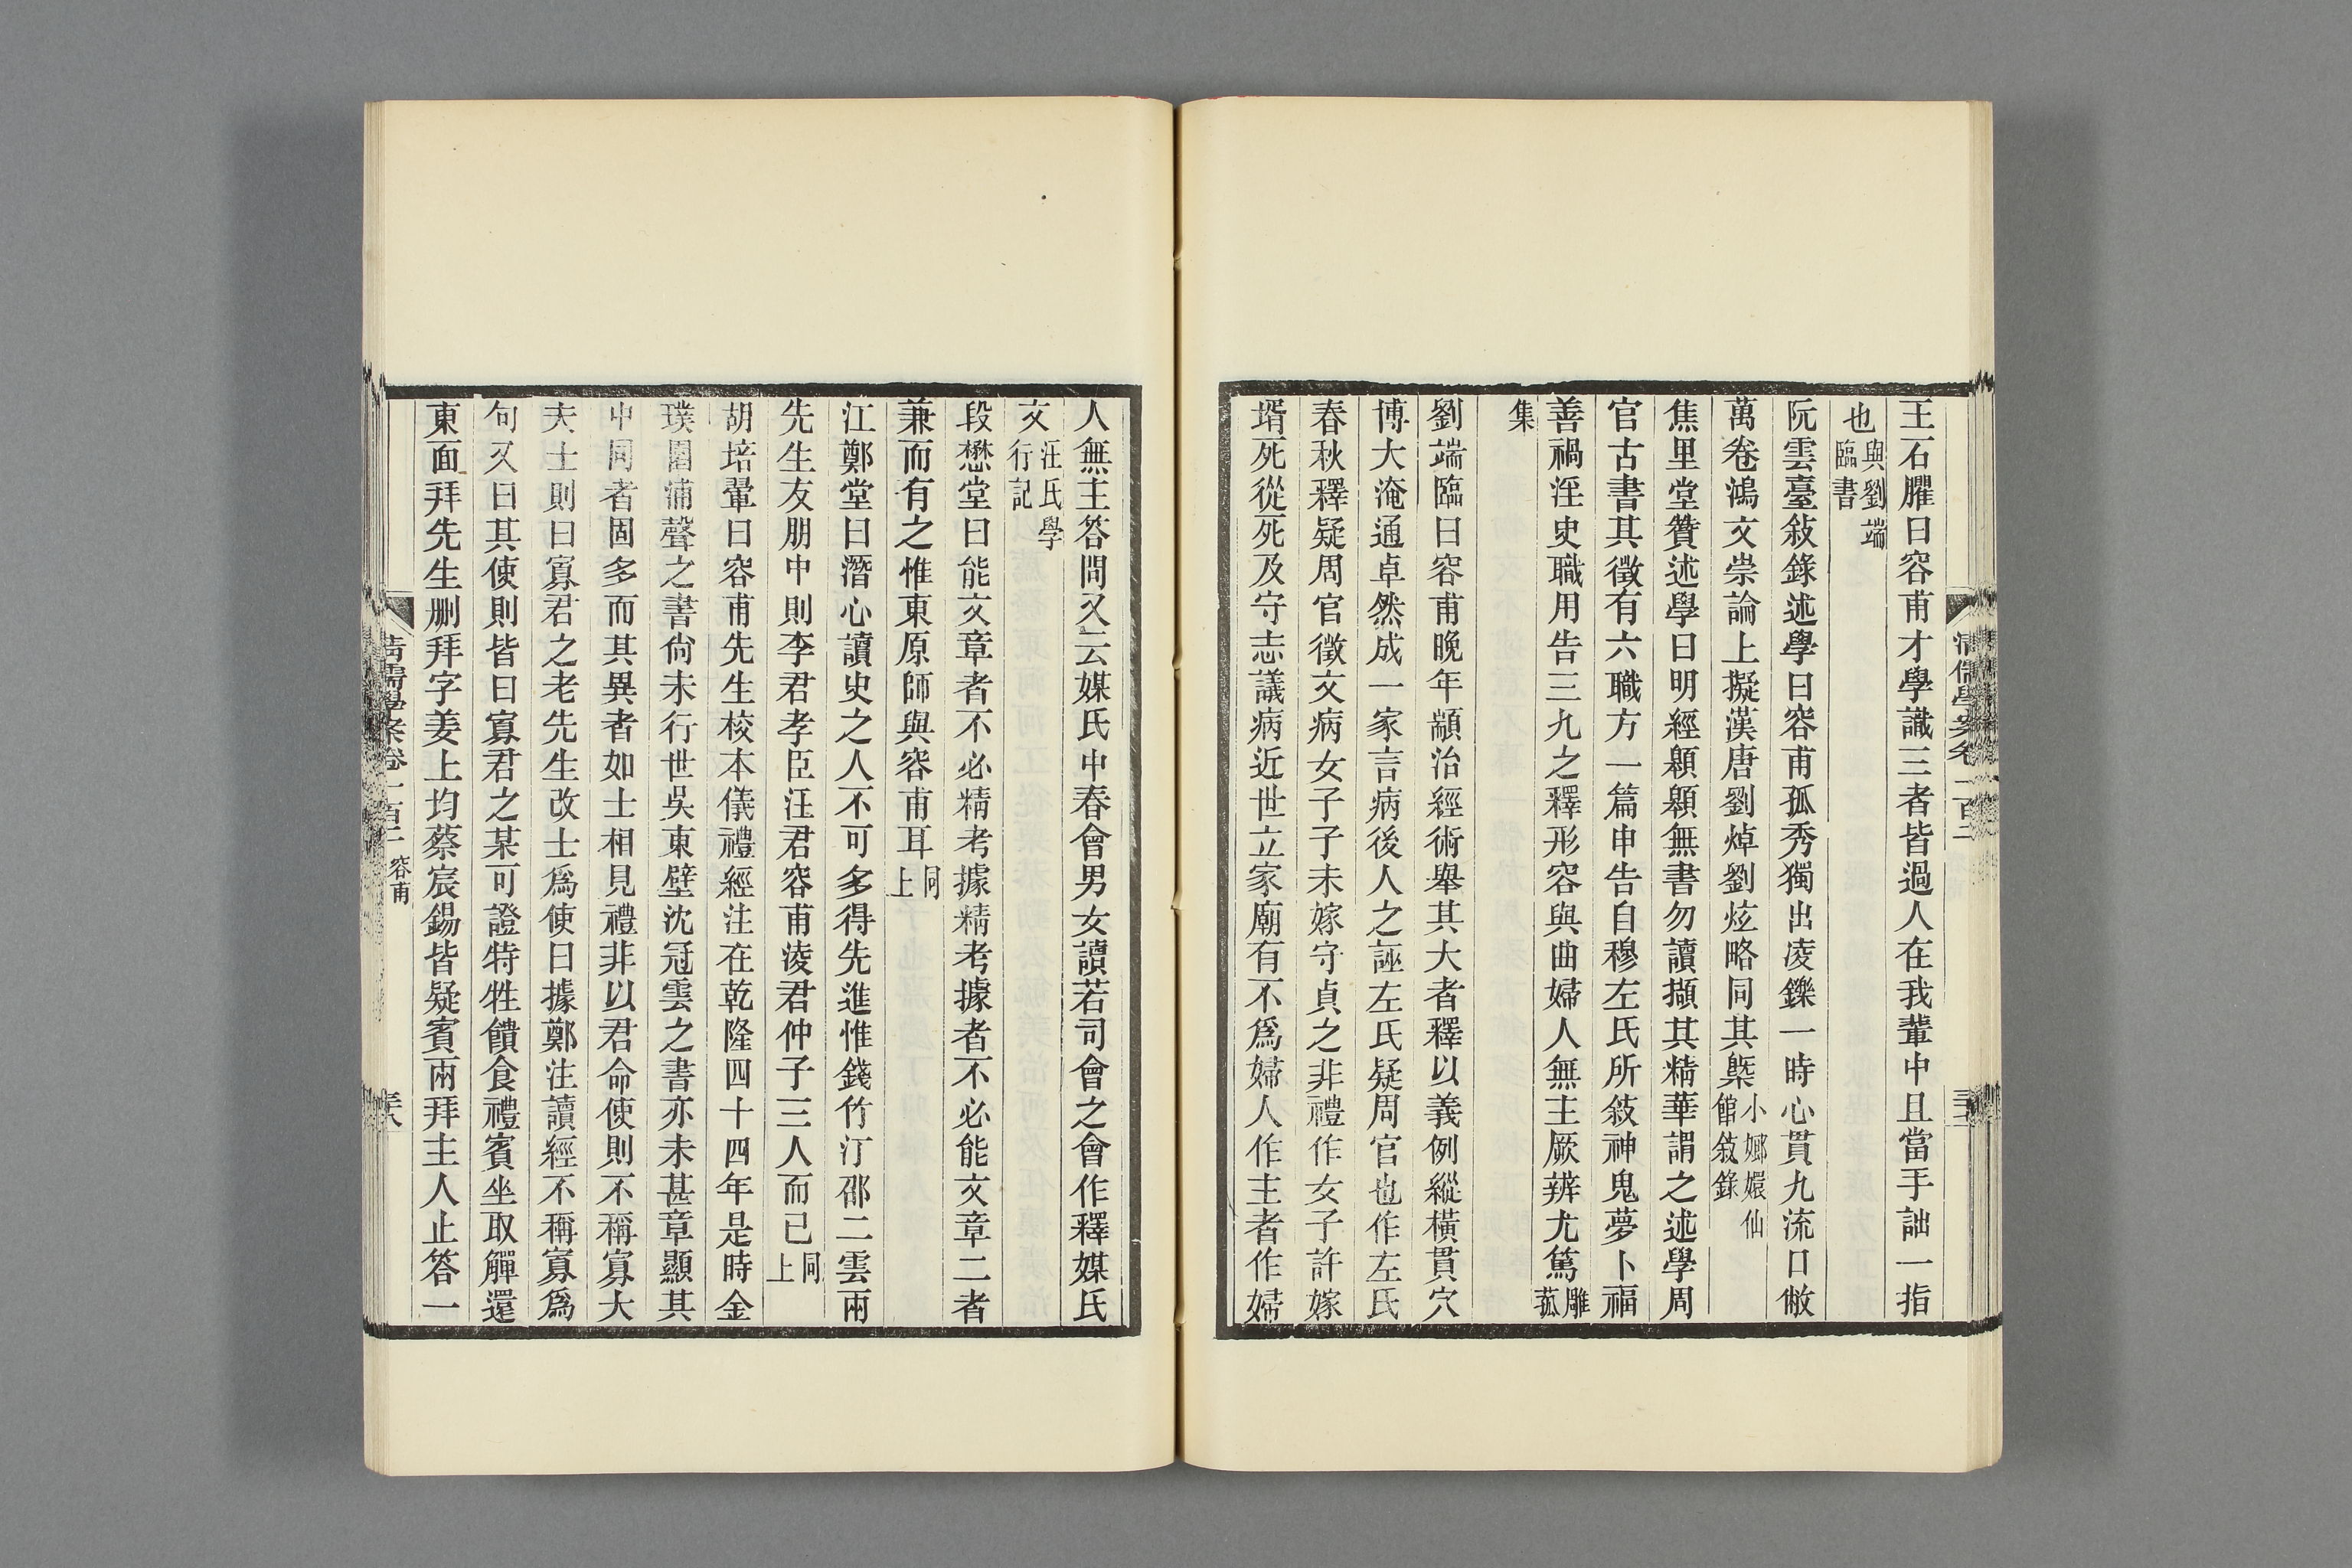 王石臞曰容甫才學識三者皆過人在我輩中且當手詘一指
也與劉端臨書
阮雲臺敍錄述學曰容甫孤秀獨出凌鑠一時心貫九流口敝
萬卷鴻文崇論上擬漢唐劉焯劉炫略同其槩小嫏嬛仙館敍錄
焦里堂贊述學曰明經顒顒無書勿讀擷其精華謂之述學周
官古書其徵有六職方一篇申告自穆左氏所敍神鬼夢卜福
善禍淫史職用告三九之釋形容與曲婦人無主厥辨尤篤雕菰
集
劉端臨曰容甫晚年顓治經術舉其大者釋以義例縱橫貫穴
博大淹通卓然成一家言病後人之誣左氏疑周官也作左氏
春秋釋疑周官徵文病女子子未嫁守貞之非禮作女子許嫁
壻死從死及守志議病近世立家廟有不爲婦人作主者作婦
清儒學案卷一百二
人無主答問又云媒氏中春會男女讀若司會之會作釋媒氏
文汪氏學行記
段懋堂曰能文章者不必精考據精考據者不必能文章二者
兼而有之惟東原師與容甫耳同上
江鄭堂曰潛心讀史之人不可多得先進惟錢竹汀邵二雲兩
先生友朋中則李君孝臣汪君容甫淩君仲子三人而已同上
胡培翬曰容甫先生校本儀禮經注在乾隆四十四年是時金
璞園浦聲之書尙未行世吳東壁沈冠雲之書亦未甚章顯其
中同者固多而其異者如士相見禮非以君命使則不稱寡大
夫士則曰寡君之老先生改士爲使曰據鄭注讀經不稱寡爲
句又曰其使則皆曰寡君之某可證特牲饋食禮賓坐取觶還
東面拜先生删拜字姜上均蔡宸錫皆疑賓兩拜主人止答一
清儒學案卷一百二 容甫
三八